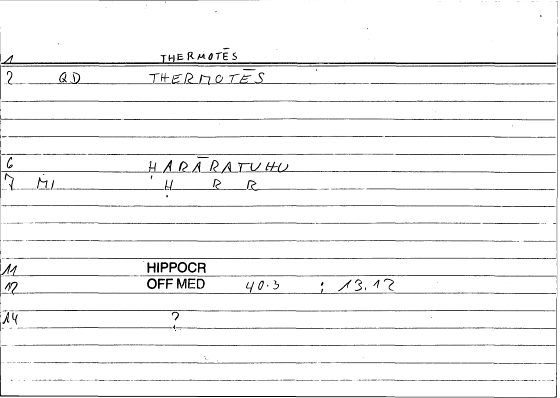 1 THERMOTĒS
2 QD THERMOTĒS
6 ḤARĀRATUHU
7 MI Ḥ R R
11 HIPPOCR
12 OFF MED 40.3 ; 13.12
14 ?